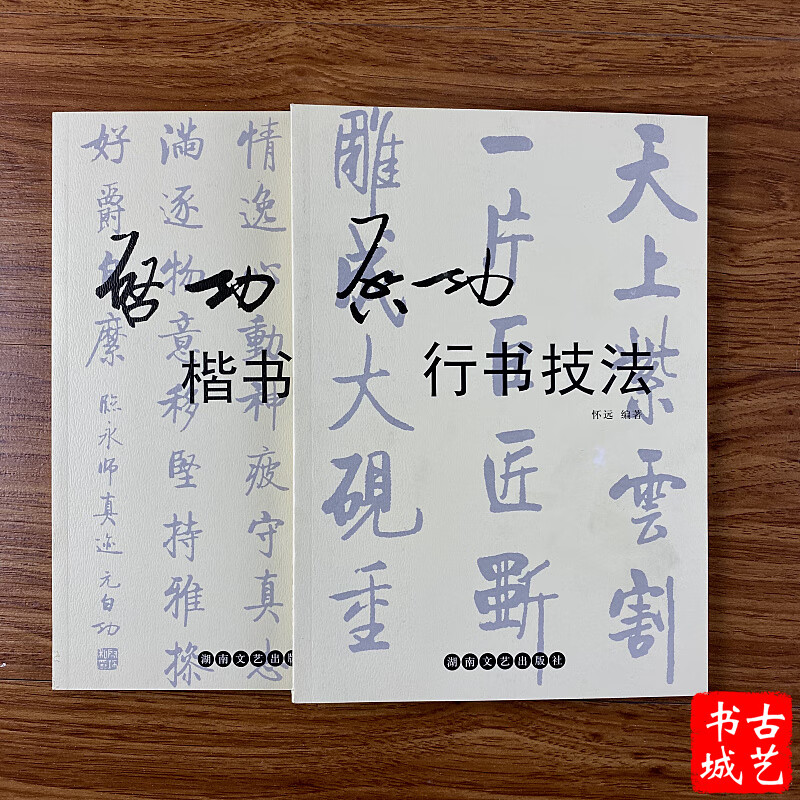 情逸心動神疲守真志
滿逐物意移堅持雅操
好爵自縻
臨永師真迹 元白功
啓功
楷书
湖南文艺出版
天上紫雲割
一片百匠斲
雕成大硯重
启功
行书技法
怀远 编著
湖南文艺出版社
古艺
书城